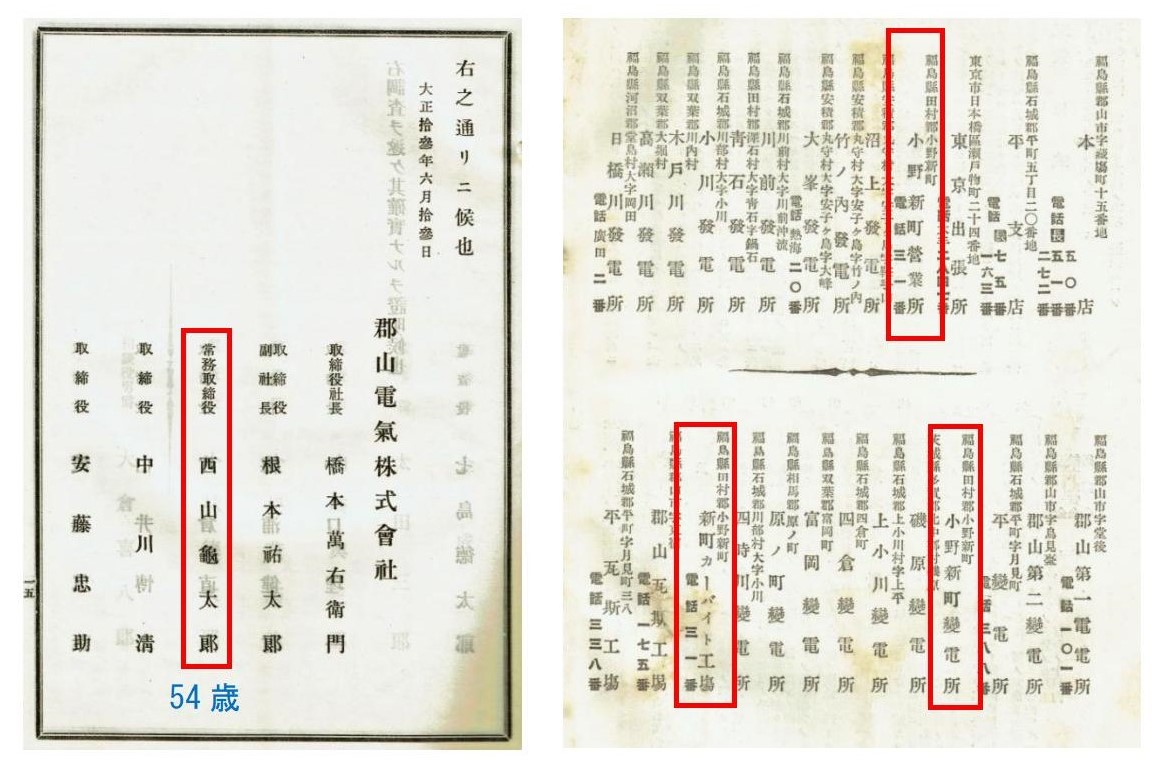 右之通リニ候也
大正拾叁年六月拾叁日
郡山電氣株式會社
取締役社長 橋本萬右衛門
取締役副社長 根本祐太郎
常務取締役 西山龜太郎
取締役 中川清
取締役 安藤忠助
一五
54歳
福島縣郡山市字燧塲町十五番地
本店
電話長 五〇番 五一番
福島縣石城郡平町五丁目二〇番地
平支店
二七二番
東京市日本橋區瀬戸物町二十四番地
東京出張所
福島縣田村郡小野新町
小野新町營業所
電話三一番
沼上發電所
福島縣安積郡丸守村大字安子ケ島字竹ノ内
竹ノ内發電所
福島縣安積郡丸守村大字安子ケ島字大峰
大峯發電所
電話熱海二〇番
福島縣石城郡川前村大字川前沖渡
川前發電所
福島縣田村郡澤石村大字靑石字鍋石
靑石發電所
福島縣石城郡川部村大字小川
小川發電所
福島縣双葉郡川内村
木戸川發電所
福島縣双葉郡大堀村
高瀬川發電所
福島縣河沼郡堂島村大字岡田
日橋川發電所
電話廣田二番
福島縣郡山市字堂後
郡山第一變電所
電話一〇一番
郡山第二變電所
福島縣石城郡平町字月見町
平變電所
電話三八八番
福島縣田村郡小野新町
小野新町變電所
磯原變電所
福島縣石城郡上小川村字上平
上小川變電所
福島縣石城郡四倉町
四倉變電所
福島縣双葉郡富岡町
富岡變電所
福島縣相馬郡原ノ町
原ノ町變電所
福島縣石城郡川部村大字小川
四時川變電所
福島縣田村郡小野新町
新町カーバイト工塲
電話三一番
郡山瓦斯工塲
電話一七五番
福島縣石城郡平町字月見町三八
平瓦斯工塲
電話三三八番